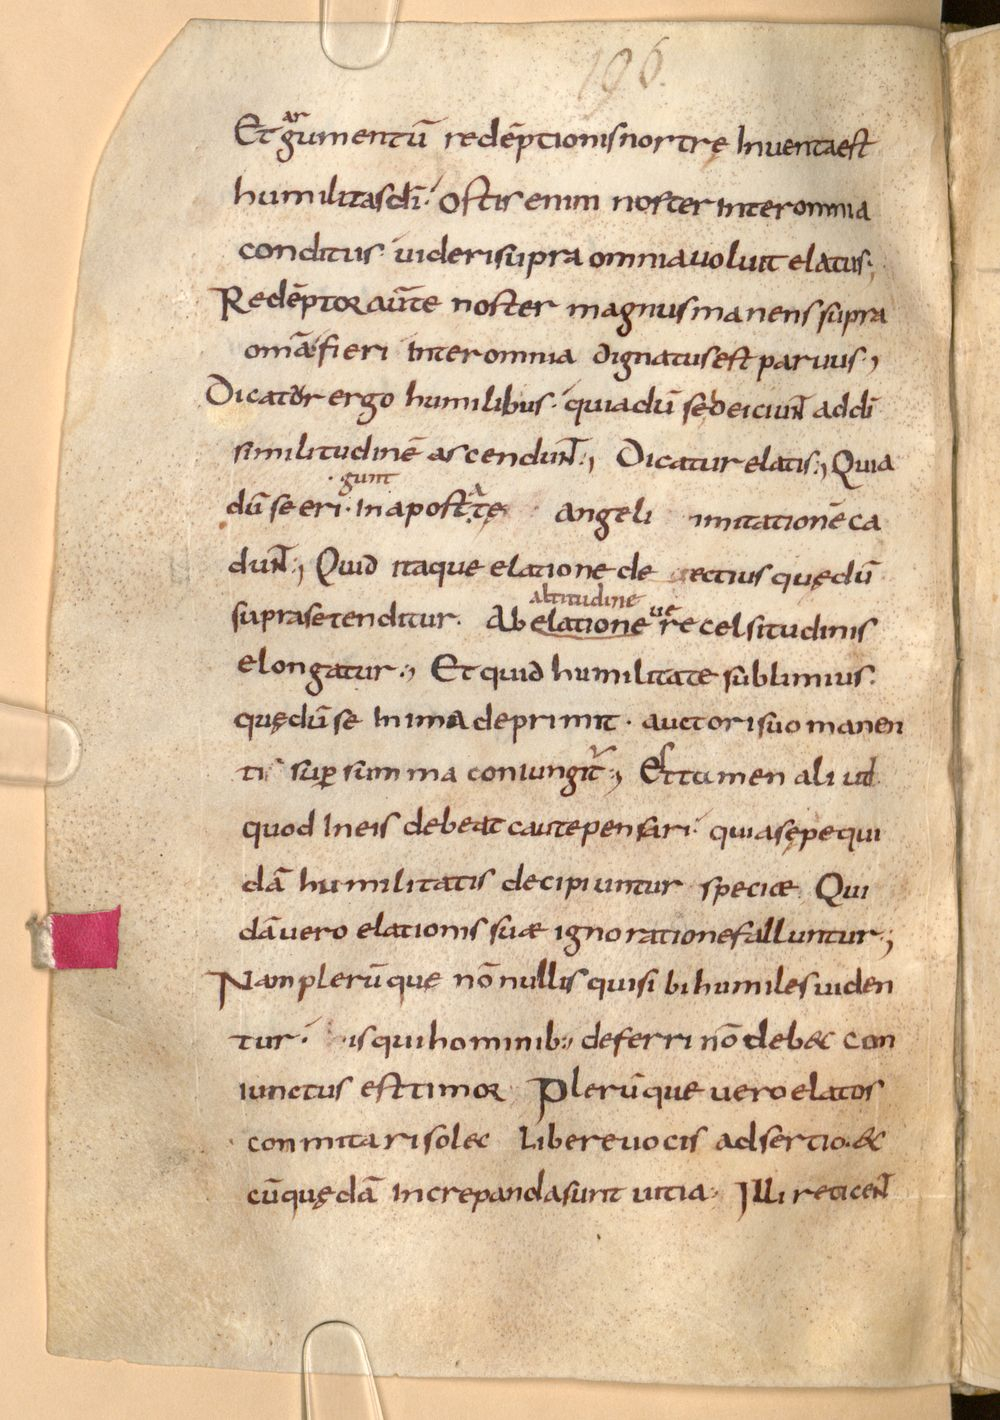 196.
Et ar
gumentū redēptionis nostrę Inuenta est
humilitas dī· Ostis enim noster inter omnia
conditus· uideri supra omnia uoluit elatus·,
Redēptor aūte noster magnus manens supra
omā fieri inter omnia dignatus est paruus·,
Dicatur ergo humilibus· quia dū se deiciunt ad dī
similitudinē ascendunt·, Dicatur elatis·, Quia
·gunt a
dū se eri· in apostatę angeli imitationē ca
dunt·, Quid itaque elatione deiectius quę dū
supra se tenditur· Ab elatione ue re celsitudinis
altitudine
elongatur·, Et quid humilitate sublimius·
quę dū se in ima deprimit· auctori suo manen
ti sup summa coniungit·, Est tamen aliud
quod In eis debeat caute pensari· quia sępe qui
dā humilitatis decipiuntur speciæ Qui
dā uero elationis suæ ignoratione falluntur·,
Nam plerūquę nōnullis qui sibi humiles uiden
tur· is qui hominib·, deferri nō deb& con
iunctus est timor Plerūque uero elatos
conmitari sol& Libere uocis adsertio· &
cū quędā increpanda sunt uitia· Illi reticent